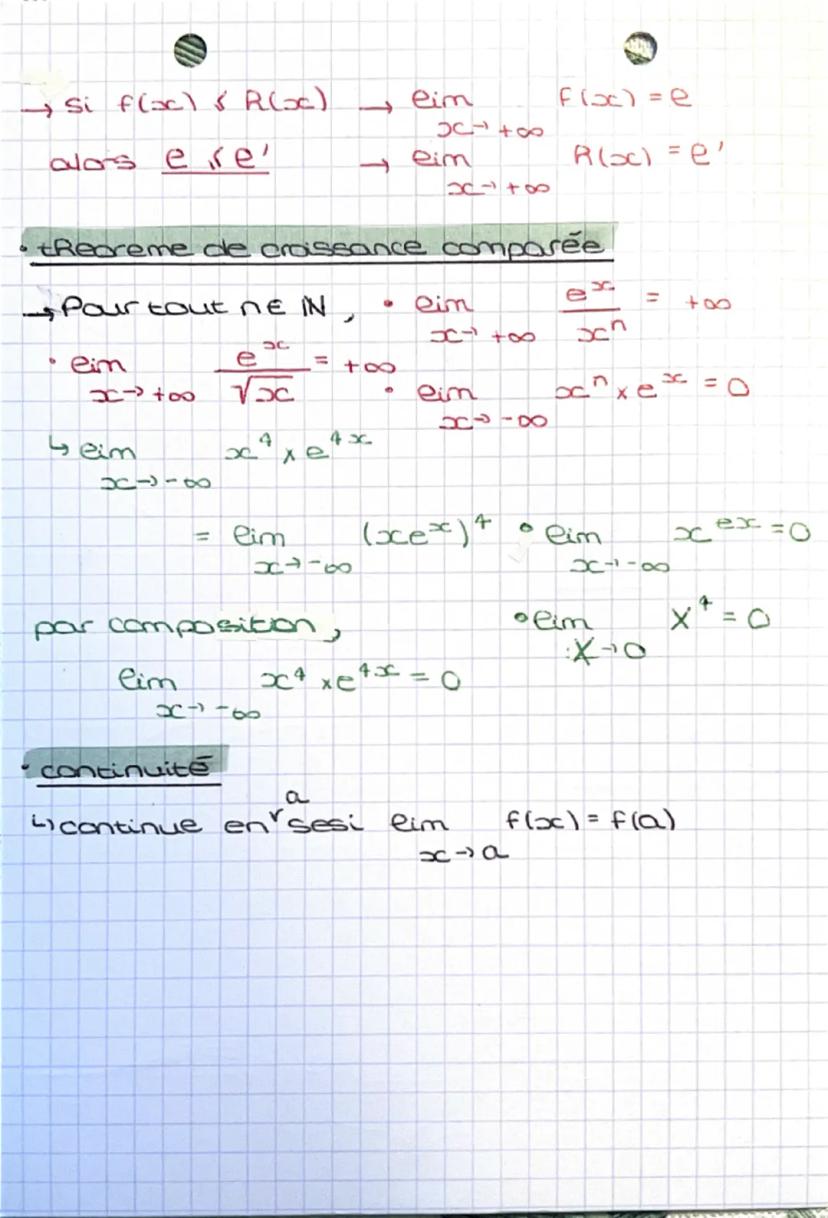 → si f(x) ≤ h(x) → lim x→+∞ f(x) = l
alors l ≤ l' → lim x→+∞ h(x) = l'
• théoreme de croissance comparée
→ Pour tout n ∈ ℕ, • lim x→+∞ e^x / x^n = +∞
• lim x→+∞ e^x / √x = +∞ • lim x→-∞ x^n × e^x = 0
↳ lim x→-∞ x^4 × e^4x
= lim x→-∞ (xe^x)^4 • lim x→-∞ x^ex = 0
par composition, • lim X→0 X^4 = 0
lim x→-∞ x^4 × e^4x = 0
• continuité
↳ continue en a sesi lim x→a f(x) = f(a)